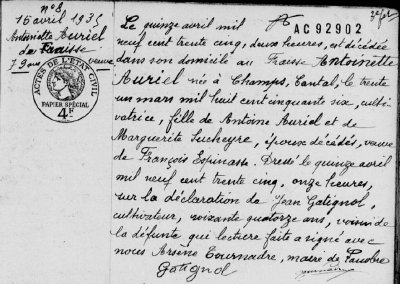 n° 8
16 avril 1935
Antoinette Auriel
de Fraisse
79 ans veuve
ACTES DE L'ETAT CIVIL
PAPIER SPÉCIAL
4F
AC 92902
Le quinze avril mil
neuf cent trente cinq, deux heures, est décédée
dans son domicile au Fraisse Antoinette
Auriel née à Champs, Cantal, le trente
un mars mil huit cent cinquante six, culti
vatrice, fille de Antoine Auriol et de
Marguerite Sucheyre, époux décédés, veuve
de François Espinasse. Dressé le quinze avril
mil neuf cent trente cinq, onze heures,
sur la déclaration de Jean Gatignol,
cultivateur, soixante quatorze ans, voisin de
la défunte qui lecture faite a signé avec
nous Arsène Tournadre, maire de
Gatignol